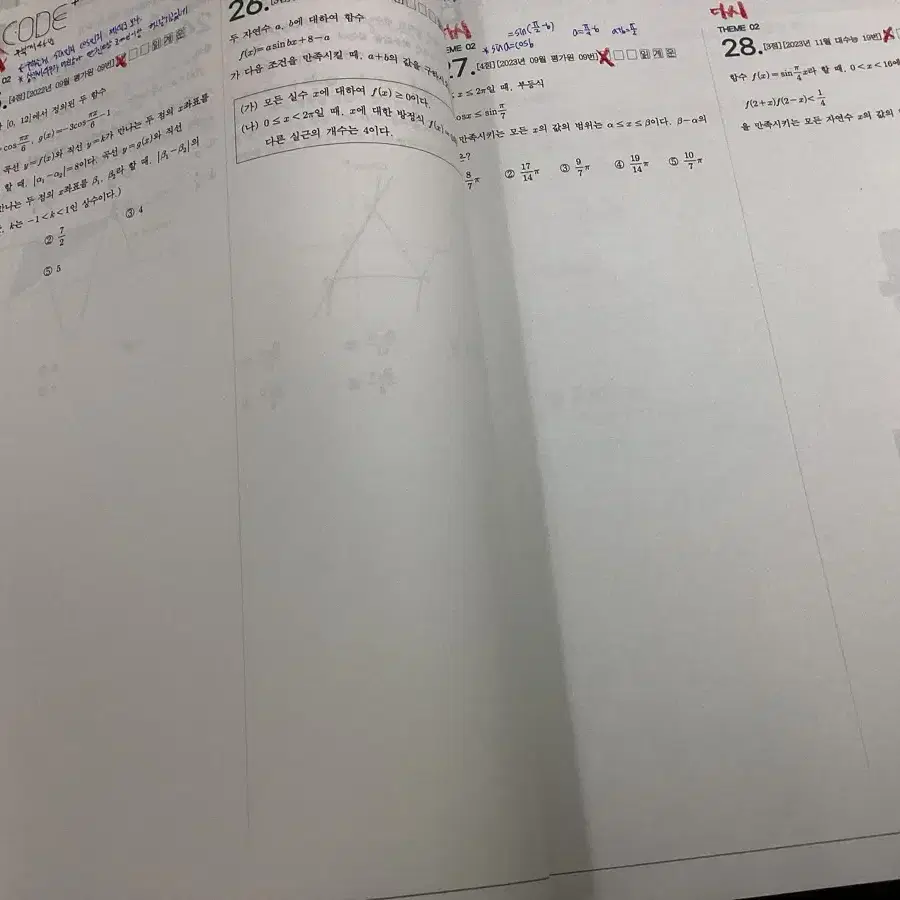 CODE
02
[4점][2022년 09월 평가원 09번]
[0, 12]에서 정의된 두 함수
cos πx/6, g(x)=-3cos πx/6 -1
곡선 y=f(x)와 직선 y=k가 만나는 두 점의 x좌표를
할 때, |α₁-α₂|=8이다. 곡선 y=g(x)와 직선
만나는 두 점의 x좌표를 β₁, β₂라 할 때, |β₁-β₂|의
k는 -1<k<1인 상수이다.)
② 7/2 ③ 4
⑤ 5
26.
두 자연수 a, b에 대하여 함수
f(x)=a sin bx+8-a
가 다음 조건을 만족시킬 때, a+b의 값을
(가) 모든 실수 x에 대하여 f(x)≥0이다.
(나) 0≤x<2π일 때, x에 대한 방정식 f(x)
다른 실근의 개수는 4이다.
=sin(π/2-b) a=π/2-b a+b=π/2
* sina=cosb
EME 02
7. [4점][2023년 09월 평가원 09번]
x≤2π일 때, 부등식
osx≤sin π/7
만족시키는 모든 x의 값의 범위는 α≤x≤β이다. β-α의
은?
8/7 π ② 17/14 π ③ 9/7 π ④ 19/14 π ⑤ 10/7 π
다시
THEME 02
28. [3점][2023년 11월 대수능 19번]
함수 f(x)=sin π/4 x라 할 때, 0<x<16에
f(2+x)f(2-x)<1/4
을 만족시키는 모든 자연수 x의 값의